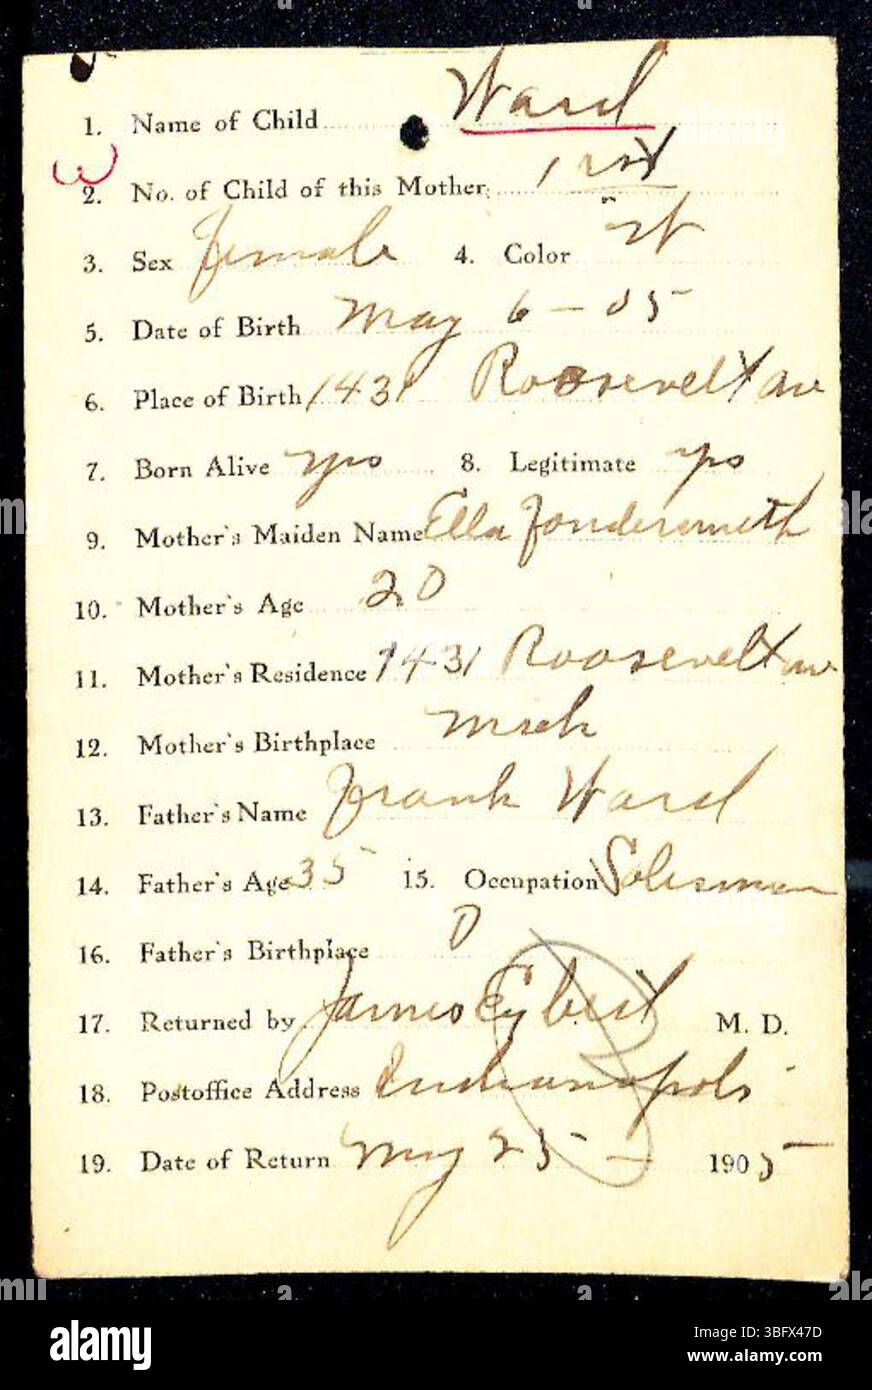 1. Name of Child Ward
2. No. of Child of this Mother 1 rst
3. Sex Female 4. Color W
5. Date of Birth May 6 - 05
6. Place of Birth 1431 Roosevelt av
7. Born Alive yes 8. Legitimate yes
9. Mother's Maiden Name Ella Fondersmith
10. Mother's Age 20
11. Mother's Residence 1431 Roosevelt av
12. Mother's Birthplace Mich
13. Father's Name Frank Ward
14. Father's Age 35 15. Occupation Salesman
16. Father's Birthplace O
17. Returned by James M. D.
18. Postoffice Address Indianapolis
19. Date of Return May 25 - 1905
alamy
Image ID: 3BFX47D
www.alamy.com